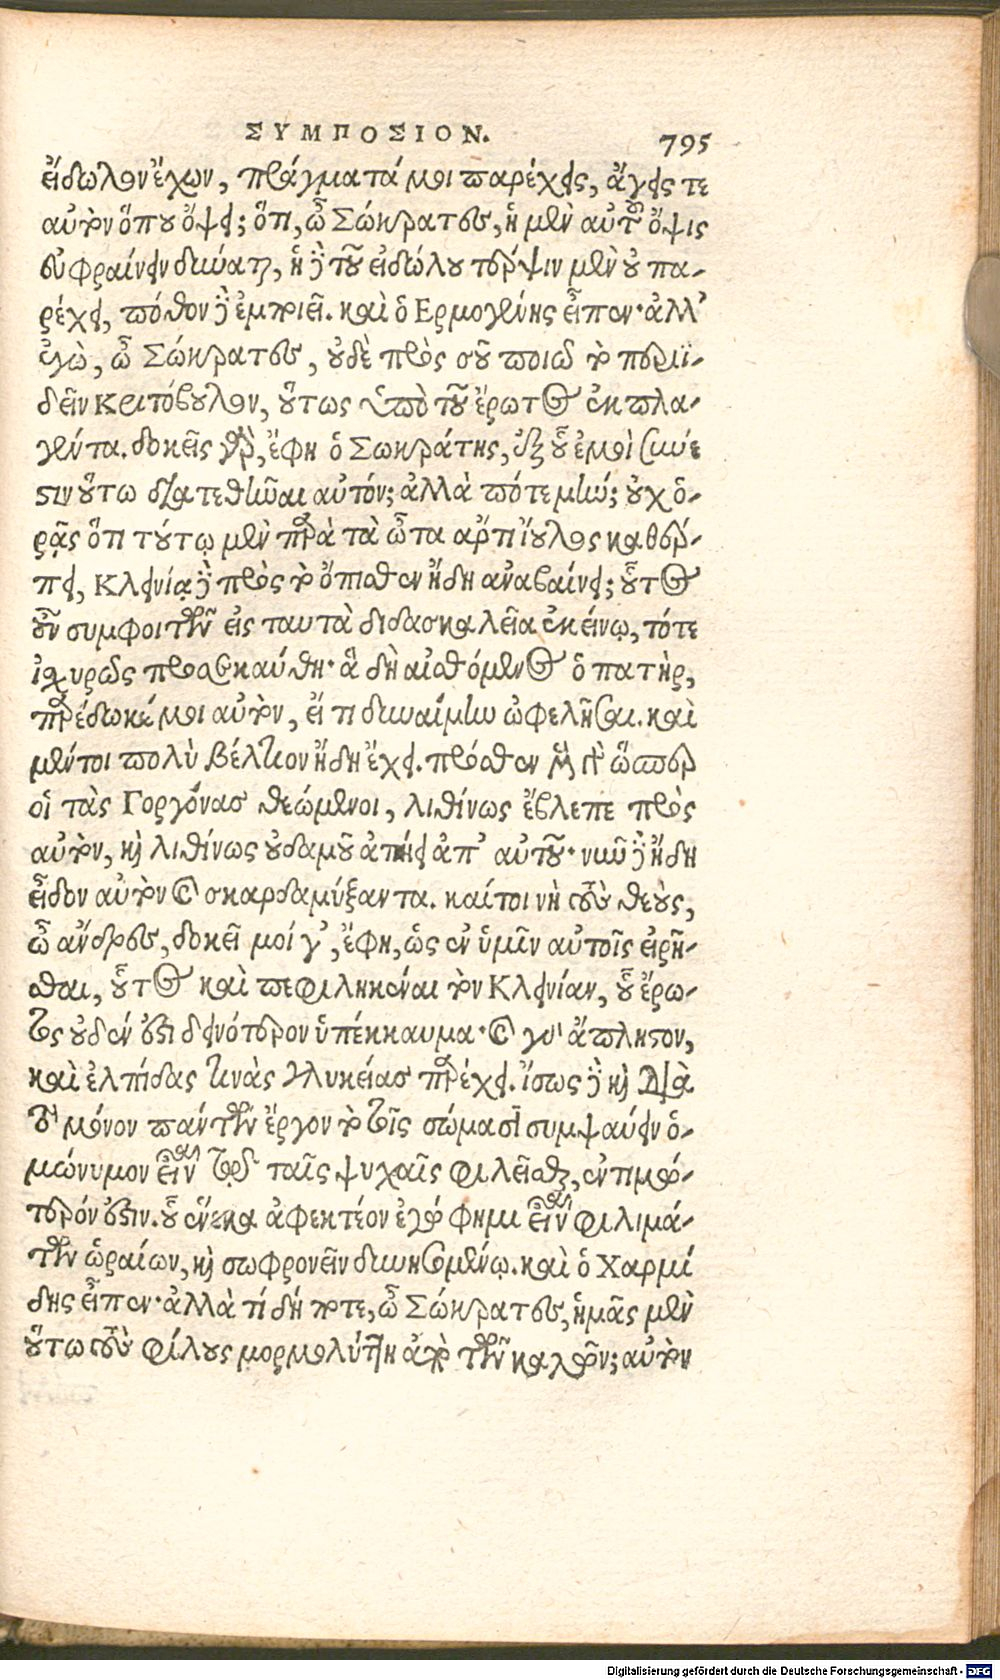 ΣΥΜΠΟΣΙΟΝ. 795
εἴδωλον ἔχων, πράγματά μοι παρέχεις, ἄγεις τε
αὐτὸν ὅπου ὄψει; ὅτι, ὦ Σώκρατες, ἡ μὲν αὐτοῦ ὄψις
εὐφραίνειν δύναται, ἡ δὲ τοῦ εἰδώλου τέρψιν μὲν οὐ πα-
ρέχει, πόθον δὲ ἐμποιεῖ. καὶ ὁ Ερμογένης εἶπεν· ἀλλ'
ἐγὼ, ὦ Σώκρατες, οὐδὲ πρὸς σοῦ ποιῶ τὸ περιϊ-
δεῖν Κριτόβουλον, οὕτως ὑπὸ τοῦ ἔρωτος ἐκπλα-
γέντα. δοκεῖς γὰρ, ἔφη ὁ Σωκράτης, ἐξ οὗ ἐμοὶ σύνε
στιν οὕτω διατεθῆναι αὐτόν; ἀλλὰ πότε μήν; οὐχ ὁ-
ρᾷς ὅτι τούτῳ μὲν παρὰ τὰ ὦτα ἄρτι ἴουλος καθέρ-
πει, Κλεινίᾳ δὲ πρὸς τὸ ὄπισθεν ἤδη ἀναβαίνει; οὗτος
οὖν συμφοιτῶν εἰς ταυτὰ διδασκαλεῖα ἐκείνῳ, τότε
ἰσχυρῶς προσεκαύθη· ἃ δὴ αἰσθόμενος ὁ πατὴρ,
παρέδωκέ μοι αὐτὸν, εἴ τι δυναίμην ὠφελῆσαι. καὶ
μέντοι πολὺ βέλτιον ἤδη ἔχει. πρόσθεν μὲν γὰρ ὥσπερ
οἱ τὰς Γοργόνας θεώμενοι, λιθίνως ἔβλεπε πρὸς
αὐτὸν, καὶ λιθίνως οὐδαμοῦ ἀπῄει ἀπ' αὐτοῦ· νῦν δὲ ἤδη
εἶδον αὐτὸν καὶ σκαρδαμύξαντα. καίτοι νὴ τοὺς θεοὺς,
ὦ ἄνδρες, δοκεῖ μοί γ', ἔφη, ὡς ἐν ὑμῖν αὐτοῖς εἰρῆ-
σθαι, οὗτος καὶ πεφιληκέναι τὸν Κλεινίαν, οὗ ἔρω-
τος οὐδέν ἐστι δεινότερον ὑπέκκαυμα· καὶ γὰρ ἄπληστον,
καὶ ἐλπίδας τινὰς γλυκείας παρέχει. ἴσως δὲ καὶ διὰ
τὸ μόνον πάντων ἔργον τὸ τοῖς σώμασι συμψαύειν ὁ-
μώνυμον εἶναι τῷ ταῖς ψυχαῖς φιλεῖσθαι, ἐντιμό-
τερόν ἐστιν. οὗ ἕνεκα ἀφεκτέον ἐγώ φημι εἶναι φιλιμά-
των ὡραίων, καὶ σωφρονεῖν δυνησομένῳ. καὶ ὁ Χαρμί
δης εἶπεν· ἀλλὰ τί δή ποτε, ὦ Σώκρατες, ἡμᾶς μὲν
οὕτω τοὺς φίλους μορμολύττῃ ἀπὸ τῶν καλῶν; αὐτὸν
Digitalisierung gefördert durch die Deutsche Forschungsgemeinschaft - DFG